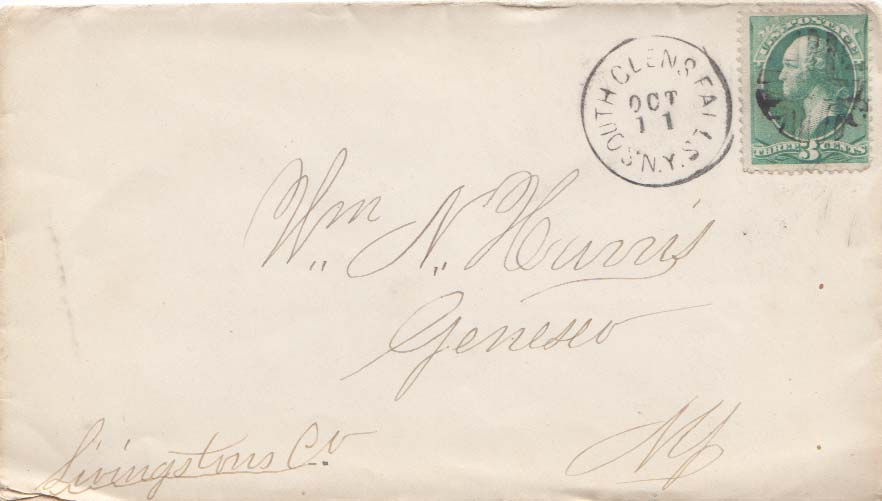 SOUTH GLENS FALLS N.Y.
OCT
11
U.S. POSTAGE
THREE 3 CENTS
Wm N. Harris
Geneseo
Livingstons Co.
NY